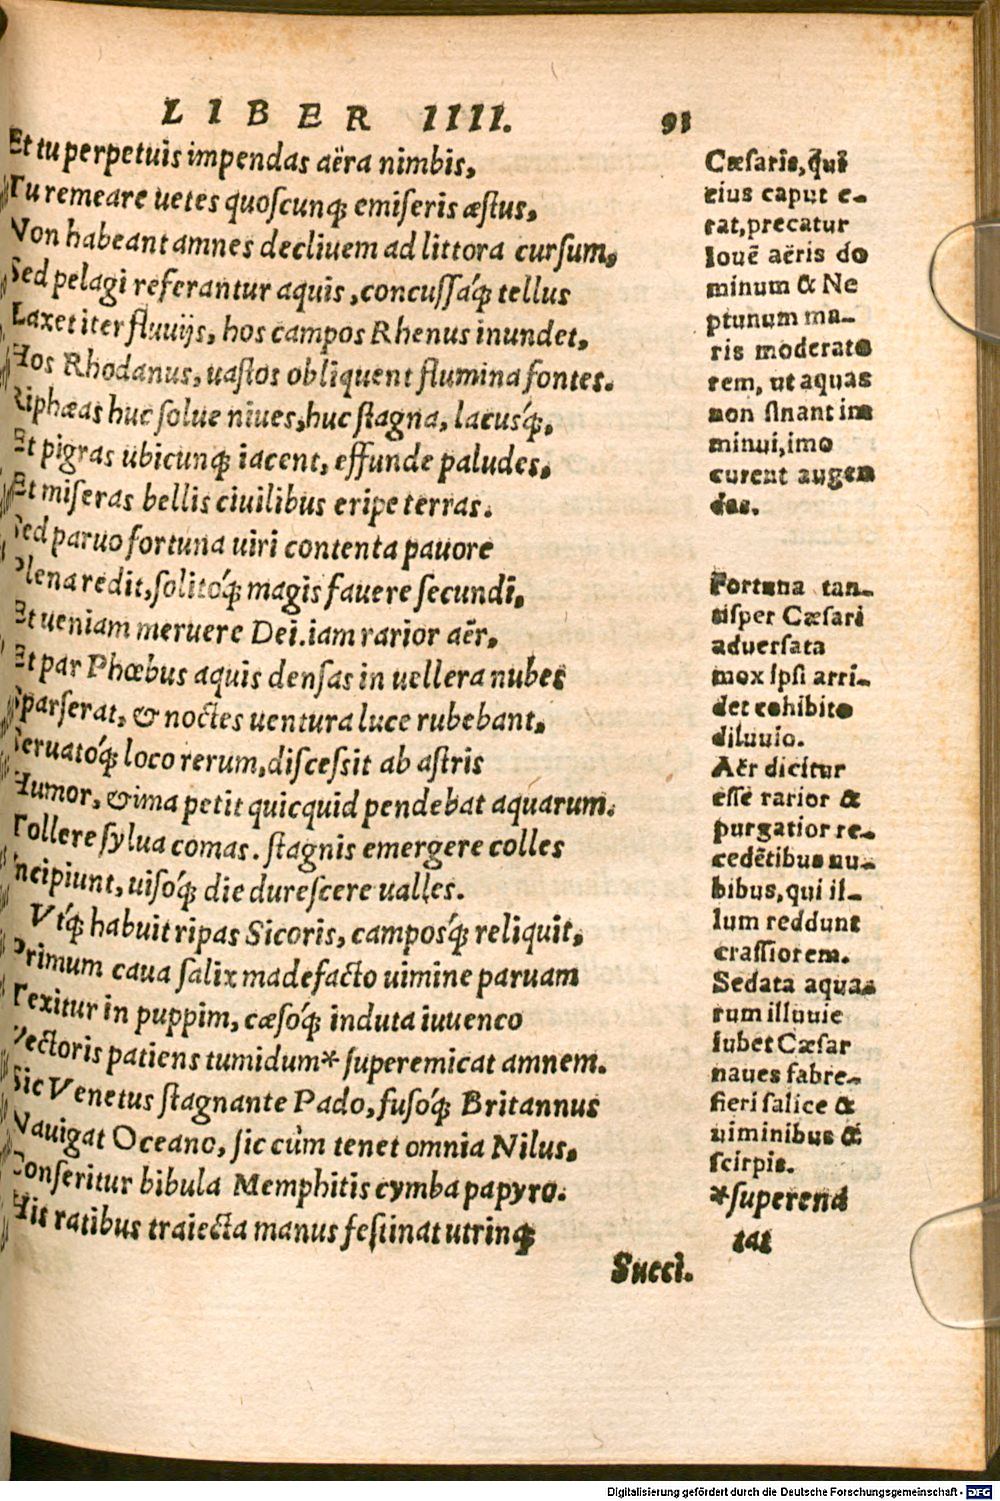 LIBER IIII. 91
Et tu perpetuis impendas aëra nimbis,
Tu remeare uetes quoscunq; emiseris æstus,
Non habeant amnes decliuem ad littora cursum,
Sed pelagi referantur aquis, concussáq; tellus
Laxet iter fluuijs, hos campos Rhenus inundet,
Hos Rhodanus, uastos obliquent flumina fontes.
Riphæas huc solue niues, huc stagna, lacusq́;,
Et pigras ubicunq; iacent, effunde paludes,
Et miseras bellis ciuilibus eripe terras.
Sed paruo fortuna uiri contenta pauore
Plena redit, solitoq́; magis fauere secundi,
Et ueniam meruere Dei. iam rarior aër,
Et par Phœbus aquis densas in uellera nubes
Sparserat, & noctes uentura luce rubebant,
Seruatoq́; loco rerum, discessit ab astris
Humor, & ima petit quicquid pendebat aquarum.
Tollere sylua comas. stagnis emergere colles
Incipiunt, uisoq́; die durescere ualles.
Vtq́; habuit ripas Sicoris, camposq́; reliquit,
Primum caua salix madefacto uimine paruam
Texitur in puppim, cæsoq́; induta iuuenco
Vectoris patiens tumidum* superemicat amnem.
Sic Venetus stagnante Pado, fusoq́; Britannus
Nauigat Oceano, sic cùm tenet omnia Nilus,
Conseritur bibula Memphitis cymba papyro.
His ratibus traiecta manus festinat utrinq;
Succi.
Cæsaris, q̃ui
eius caput e-
rat, precatur
Iouẽ aëris do
minum & Ne
ptunum ma-
ris moderato
rem, ut aquas
non sinant im
minui, imo
curent augen
das.
Fortuna tan-
tisper Cæsari
aduersata
mox ipsi arri-
det cohibito
diluuio.
Aër dicitur
esse rarior &
purgatior re-
cedẽtibus nu-
bibus, qui il-
lum reddunt
crassiorem.
Sedata aqua-
rum illuuie
iubet Cæsar
naues fabre-
fieri salice &
uiminibus &
scirpis.
*superena
tat
Digitalisierung gefördert durch die Deutsche Forschungsgemeinschaft - DFG